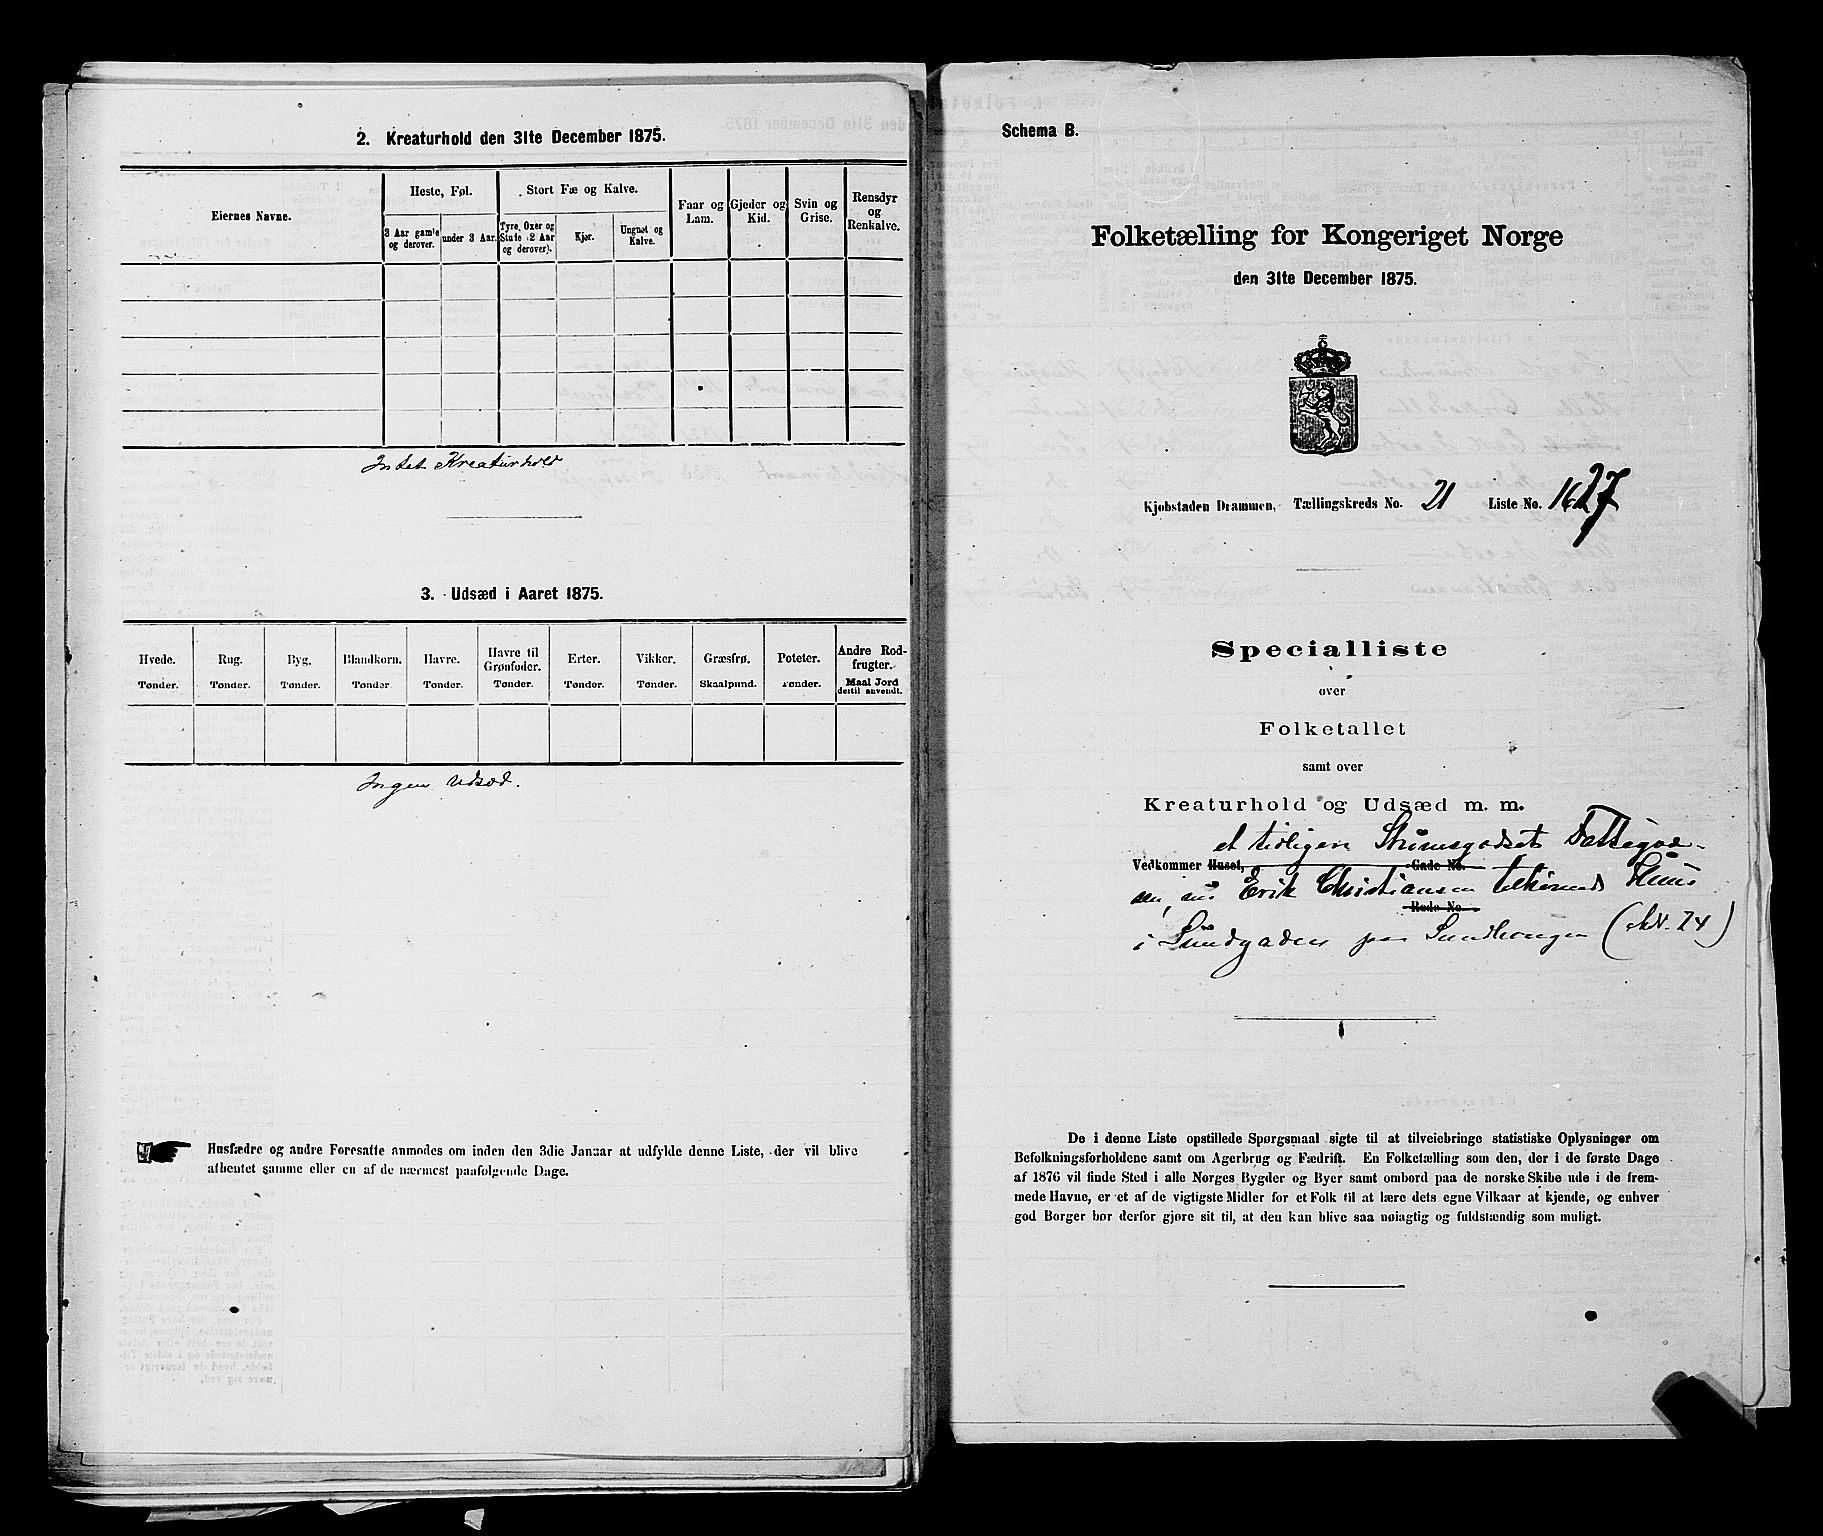 2. Kreaturhold den 31te December 1875.
Eiernes Navne.
Heste, Føl.
3 Aar gamle og derover.
under 3 Aar.
Stort Fæ og Kalve.
Tyre, Oxer og Stude (2 Aar og derover).
Kjør.
Ungnøt og Kalve.
Faar og Lam.
Gjeder og Kid.
Svin og Grise.
Rensdyr og Renkalve.
Intet Kreaturhold
3. Udsæd i Aaret 1875.
Hvede. Tønder.
Rug. Tønder.
Byg. Tønder.
Blandkorn. Tønder
Havre. Tønder.
Havre til Grønfoder. Tønder.
Erter. Tønder.
Vikker. Tønder.
Græsfrø. Skaalpund.
Poteter. Tønder.
Andre Rodfrugter. Maal Jord dertil anvendt.
Ingen Udsæd.
Husfædre og andre Foresatte anmodes om inden den 3die Januar at udfylde denne Liste, der vil blive
afhentet samme eller en af de nærmest paafølgende Dage.
Schema B.
Folketælling for Kongeriget Norge
den 31te December 1875.
Kjøbstaden Drammen, Tællingskreds No. 21 Liste No. 1627
Specialliste
over
Folketallet
samt over
Kreaturhold og Udsæd m. m.
et tidligere Strømsgodsets Fattigvæ-
Vedkommer Huset, Gade No.
sen, nu Erik Christiansen tilhørende Huus
Rode No.
i Sundgaden paa Sundhaugen (M. N. 74)
De i denne Liste opstillede Spørgsmaal sigte til at tilveiebringe statistiske Oplysninger om
Befolkningsforholdene samt om Agerbrug og Fædrift. En Folketælling som den, der i de første Dage
af 1876 vil finde Sted i alle Norges Bygder og Byer samt ombord paa de norske Skibe ude i de frem-
mede Havne, er et af de vigtigste Midler for et Folk til at lære dets egne Vilkaar at kjende, og enhver
god Borger bør derfor gjøre sit til, at den kan blive saa nøiagtig og fuldstændig som muligt.